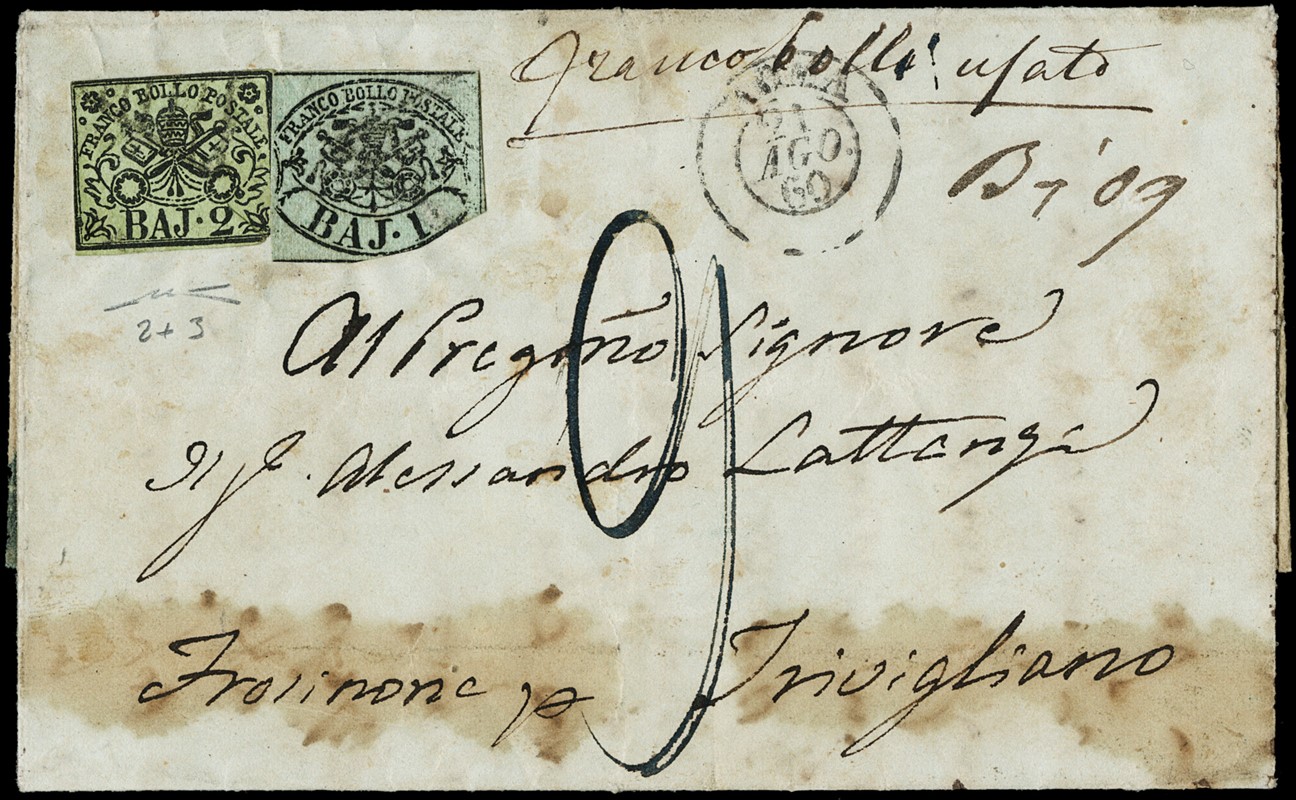 francobolli usato
FRANCO BOLLO POSTALE
BAJ·2
FRANCO BOLLO POSTALE
BAJ·1
ROMA
21
AGO
60
B 09
2+3
9
Al Pregmo Signore
Il S. Alessandro Lattanzi
Frosinone p Trivigliano